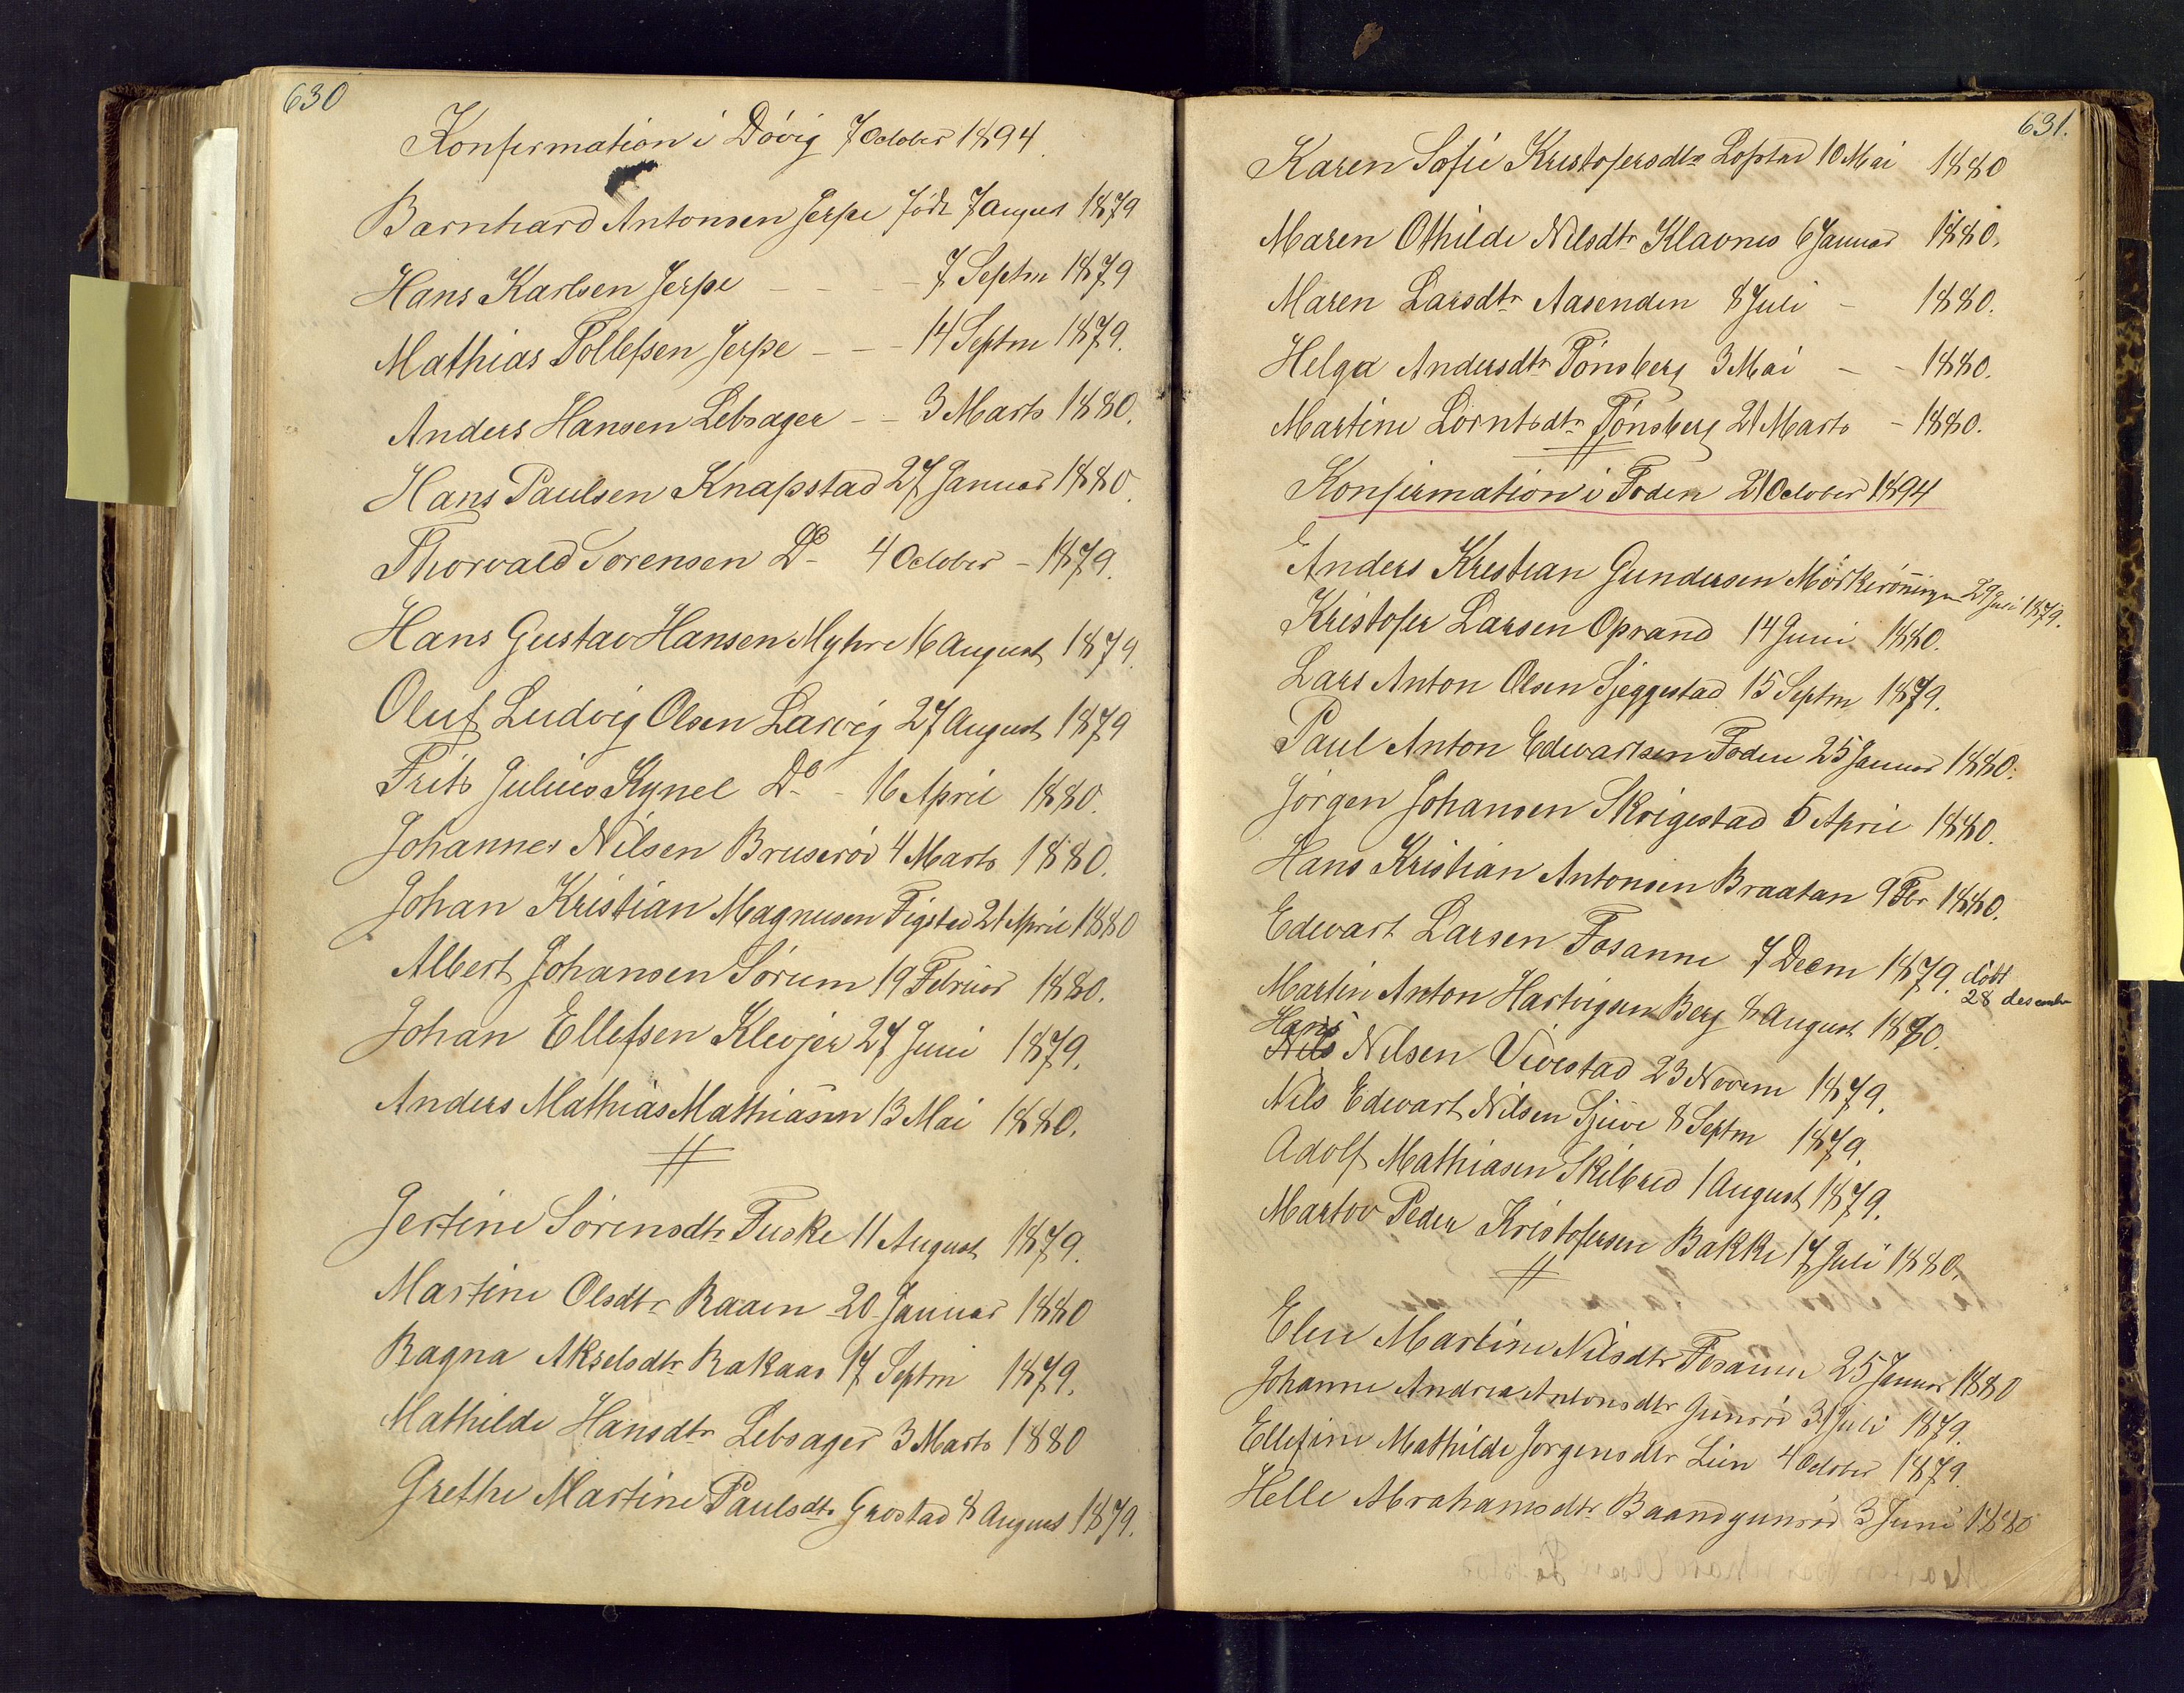 630
Konfermation i Dövig 7 October 1894.
Barnhard Antonsen Jerpe födt 7 August 1879
Hans Karlsen Jerpe - - - 7 Septm 1879
Mathias Tollefsen Jerpe - - - 14 Septm 1879.
Anders Hansen Lebsager - - 3 Marts 1880.
Hans Paulsen Knapstad 27 Januar 1880.
Thorvald Sorensen Do 4 October - 1879.
Hans Gustav Hansen Myhre 16 August 1879.
Oluf Ludvig Olsen Larvig 27 August 1879
Frits Julius Kynel Do - 16 April 1880.
Johannes Nilsen Bruseröd 4 Marts 1880.
Johan Kristian Magnusen Figstad 21 April 1880
Albert Johansen Sörum 19 Februar 1880.
Johan Ellefsen Klevjer 27 Juni 1879.
Anders Mathias Mathiasen 13 Mai 1880.
Jertine Sörensdtr Fuske 11 August 1879.
Martine Olsdtr Raaen 20 Januar 1880
Ragna Akselsdtr Rakaas 17 Septm 1879.
Mathilde Hansdtr Lebsager 3 Marts 1880
Grethe Martine Paulsdtr Grostad 8 August 1879.
631.
Karen Sofie Kristofersdtr Lofstad 10 Mai 1880
Maren Othilde Nilsdtr Klavnes 6 Januar 1880.
Maren Larsdtr Aasenden 8 Juli - 1880.
Helga Andersdtr Tönsberg 3 Mai - - 1880.
Martine Lorntsdtr Tönsberg 21 Marts - 1880.
Konfirmation i Foden 21 October 1894
Anders Kristian Gundersen Mörkeröningen 29 Juli 1879.
Kristofer Larsen Oprand 14 Juni 1880.
Lars Anton Olsen Sjeggestad 15 Septm 1879.
Paul Anton Edwartsen Foden 25 Januar 1880.
Jörgen Johansen Skrigestad 5 April 1880.
Hans Kristian Antonsen Braatan 9 Febr 1880.
Edwart Larsen Fosanne 7 Decm 1879. döbt 28 desember
Martin Anton Hartvigsen Berg 8 August 1880.
Hans
Nils Nilsen Vivestad 23 Novem 1879.
Nils Edwart Nilsen Sjuve 8 Septm 1879.
Adolf Mathiasen Skilbred 1 August 1879.
Martov Peder Kristofersen Bakke 17 Juli 1880.
Elen Martine Nilsdtr Fosanne 25 Januar 1880
Johanne Andrea Antonsdtr Gunröd 31 Juli 1879.
Ellefine Mathilde Jorgensdtr Lien 4 October 1879.
Helle Abrahamsdtr Baandgunröd 3 Juni 1880